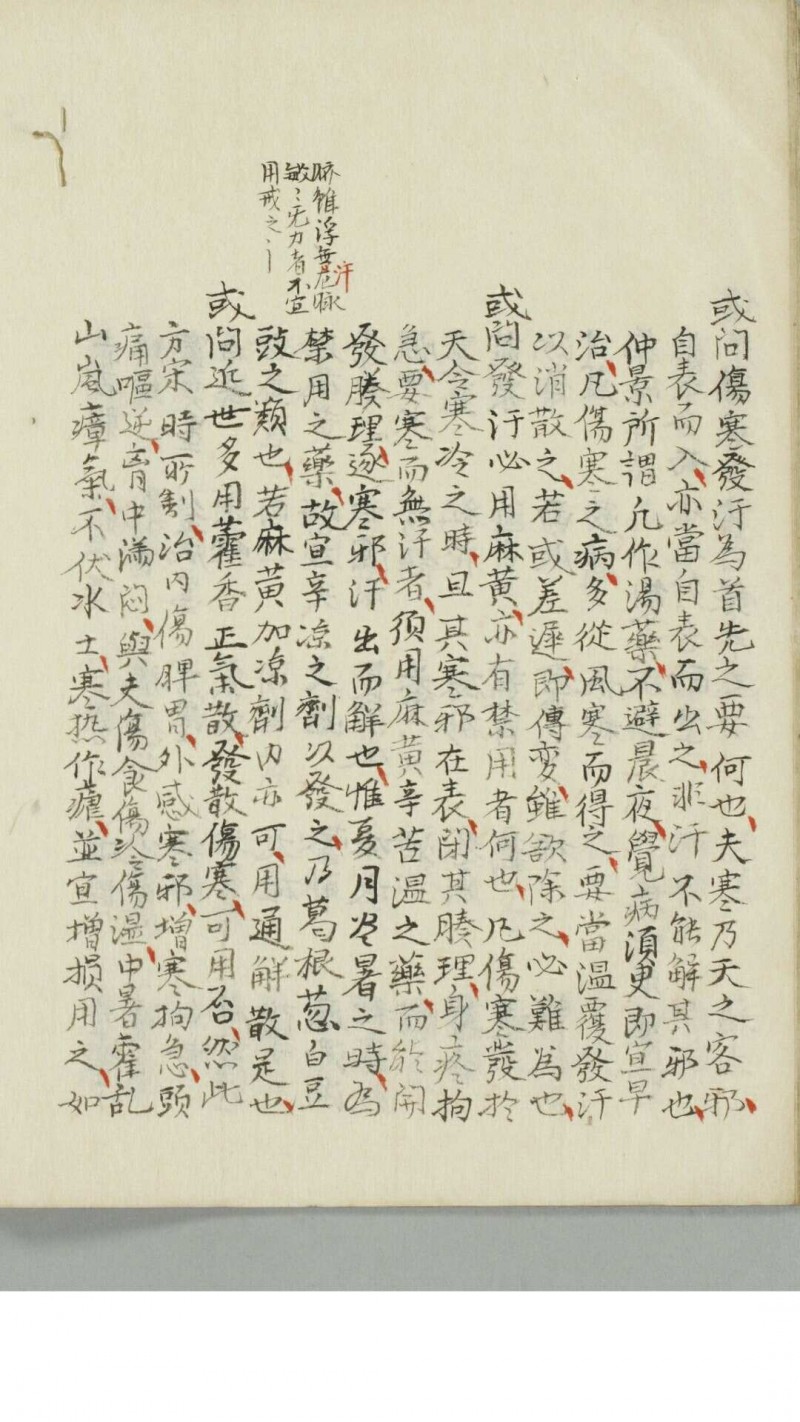 或問傷寒發汗為首先之要何也夫寒乃天之客邪
自表而入亦當自表而出之非汗不能解其邪也
仲景所謂凡作湯藥不避晨夜覺病須更即宜早
治凡傷寒之病多從風寒而得之要當溫覆發汗
以消散之若或差遲即傳變雖欲除之必難為也
或問發汗必用麻黃亦有禁用者何也凡傷寒發於
天令寒冷之時且其寒邪在表閉其腠理身疼拘
急要寒而無汗者須用麻黃辛苦溫之藥而能開
發腠理逐寒邪汗出而解也惟夏月冬暑之時為
禁用之藥故宣辛凉之劑以發之乃葛根葱白豆
豉之類也若麻黃加凉劑內亦可用通解散足也
或問近世多用藿香正氣散發散傷寒可用否然此
方宋時所制治內傷脾胃外感寒邪增寒拘急頭
痛嘔逆胷中滿悶與夫傷食傷冷傷濕中暑霍乱
山嵐瘴氣不伏水土寒热作瘧並宜增損用之如
雖浮無
汗
脉
无力者不宜
用戒之